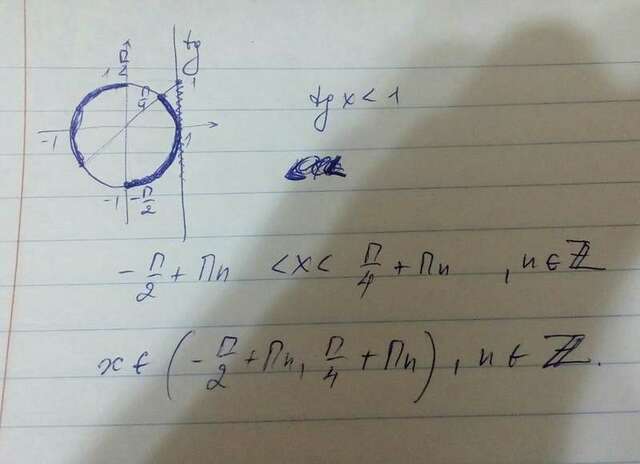 π/2
tg
1
π/4
1
-1
1
-1
-π/2
tg x < 1
-π/2 + πn < x < π/4 + πn , n ∈ ℤ
x ∈ (-π/2 + πn, π/4 + πn), n ∈ ℤ.